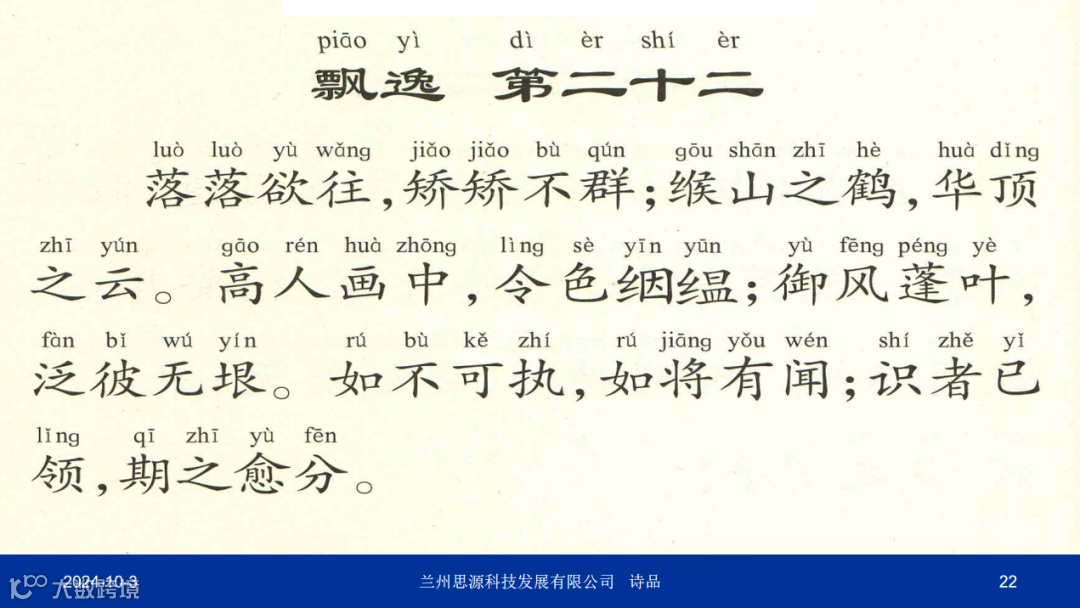 piāo yì dì èr shí èr
飘逸 第二十二
luò luò yù wǎng jiǎo jiǎo bù qún gōu shān zhī hè huà dǐng
落落欲往,矫矫不群;缑山之鹤,华顶
zhī yún gāo rén huà zhōng lìng sè yīn yūn yù fēng péng yè
之云。高人画中,令色絪缊;御风蓬叶,
fàn bǐ wú yín rú bù kě zhí rú jiāng yǒu wén shí zhě yǐ
泛彼无垠。如不可执,如将有闻;识者已
lǐng qī zhī yù fēn
领,期之愈分。
2024-10-3 兰州思源科技发展有限公司 诗品 22
大数跨境